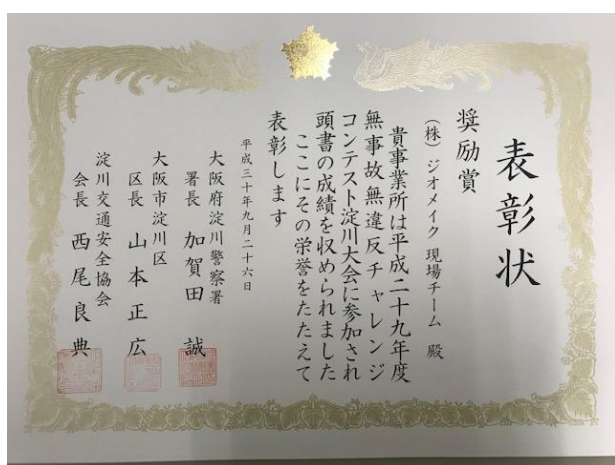 表彰状
奨励賞
(株)ジオメイク 現場チーム 殿
貴事業所は平成二十九年度
無事故無違反チャレンジ
コンテスト淀川大会に参加され
頭書の成績を収められました
ここにその栄誉をたたえて
表彰します
平成三十年九月二十六日
大阪府淀川警察署
署長 加賀田 誠
大阪市淀川区
区長 山本正広
淀川交通安全協会
会長 西尾良典